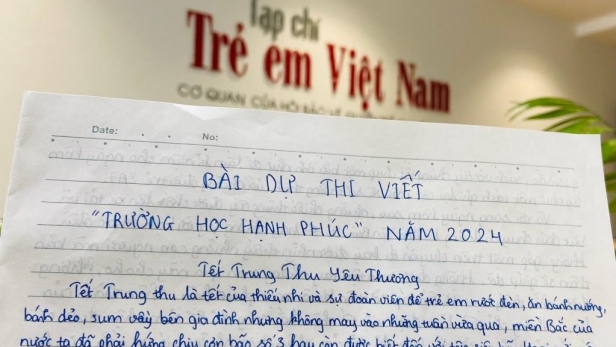 Tạp chí
Trẻ em Việt Nam
CƠ QUAN CỦA HỘI BẢO VỆ QUYỀN
Date:
No:
BÀI DỰ THI VIẾT
"TRƯỜNG HỌC HẠNH PHÚC" NĂM 2024
Tết Trung Thu Yêu Thương
Tết Trung thu là tết của thiếu nhi và sự đoàn viên để trẻ em rước đèn, ăn bánh nướng,
bánh dẻo, sum vầy bên gia đình nhưng không may vào những tuần vừa qua, miền Bắc của
nước ta đã phải hứng chịu cơn bão số 3 hay còn được biết đến với tên